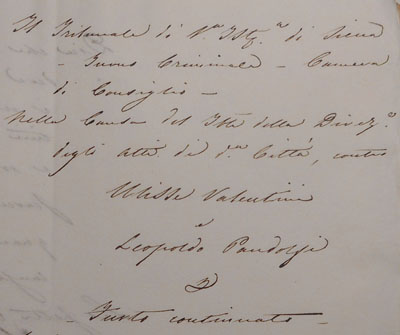 Il Tribunale di P.ma Ist.a di Siena
- Turno Criminale - Camera
di Consiglio -
Nella Causa del Direz.e
degli atti di d.a Città, contro
Ulisse Valentini
e
Leopoldo Pandolfi
D
- Furto continuato -